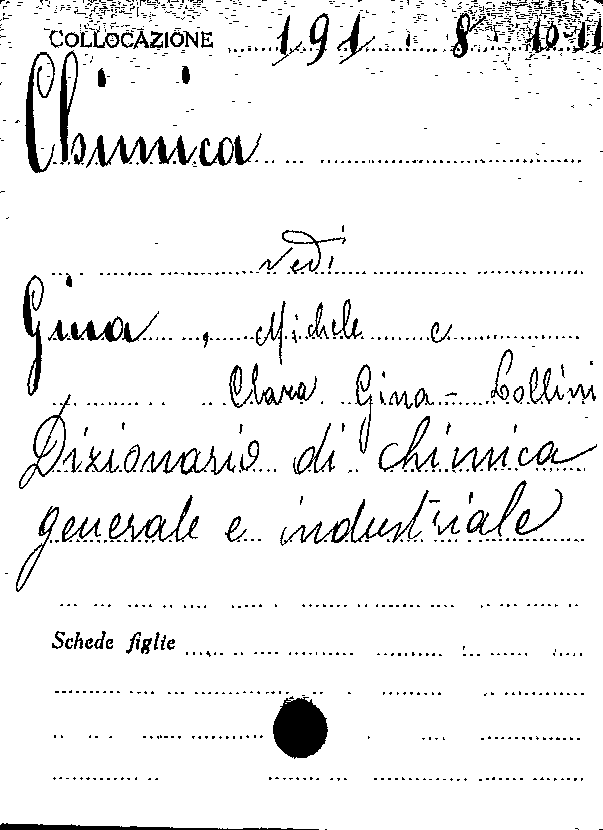 COLLOCAZIONE 191. 8. 10-11
Chimica
vedi
Giua, Michele e
Clara Giua-Lollini
Dizionario di chimica
generale e industriale
Schede figlie